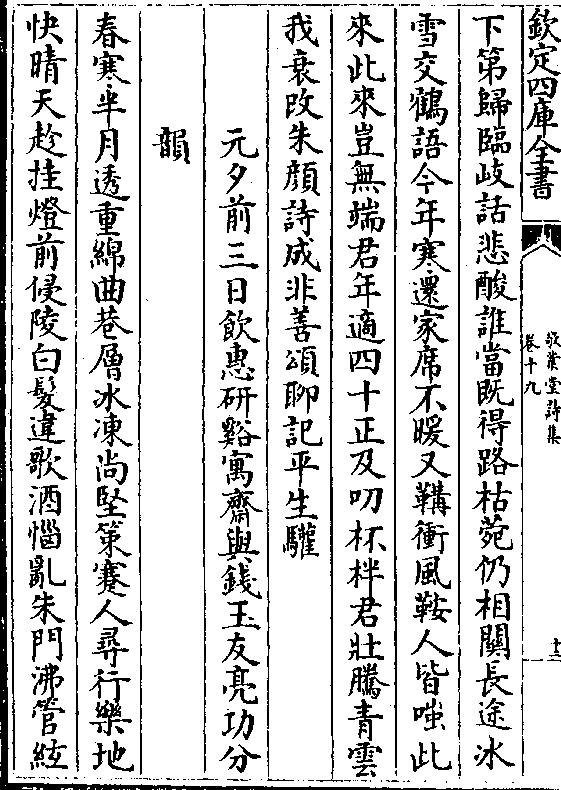 欽定四庫全書
敬業堂詩集
卷十九
十三
下第歸臨岐話悲酸誰當既得路枯菀仍相關長途冰
雪交鶴語今年寒還家席不暖又鞲衝風鞍人皆嗤此
來此來豈無端君年適四十正及叨杯柈君壯騰青雲
我衰改朱顔詩成非善頌聊記平生驩
元夕前三日飲惠研谿寓齋與錢玉友亮功分
韻
春寒半月透重綿曲巷層冰凍尚堅策蹇人尋行樂地
快晴天趁挂燈前侵陵白髮違歌酒惱亂朱門沸管絃